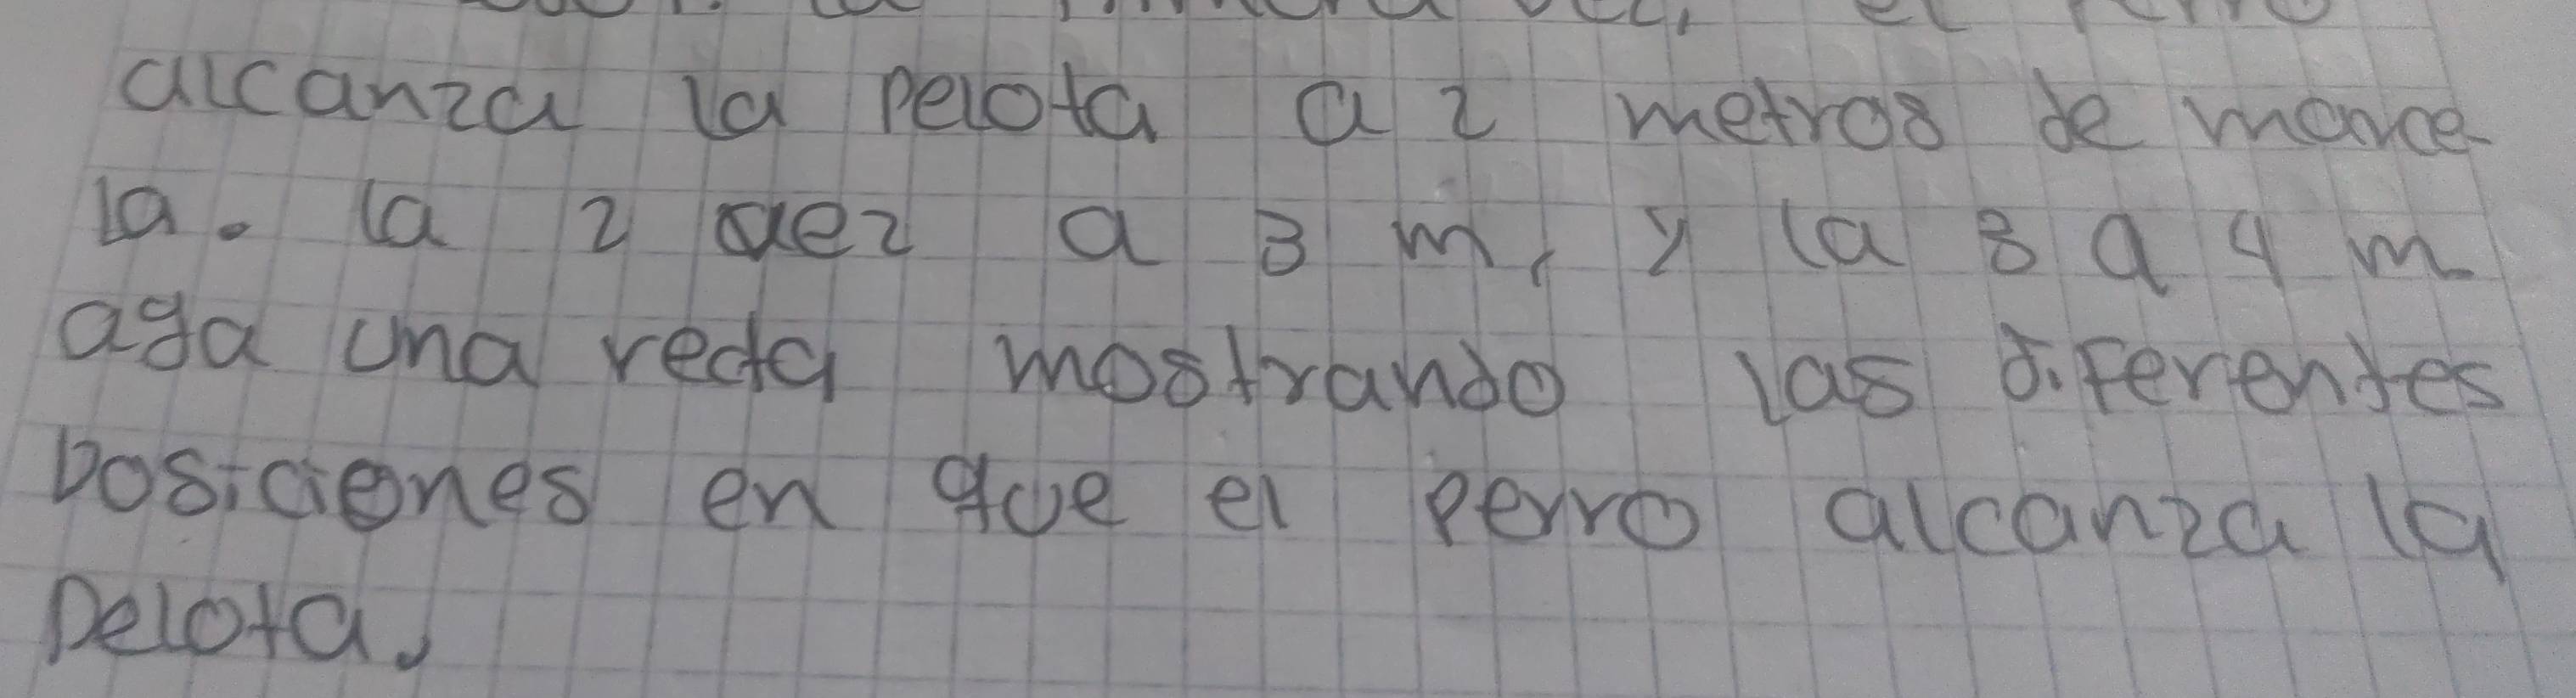 alcanza la pelota a 2 metros de marce-
la. la 2 vez a 3 m, y la 3 a 4 m
aga una recta mostrando las diferentes
posiciones en que el perro alcanza la
pelota.